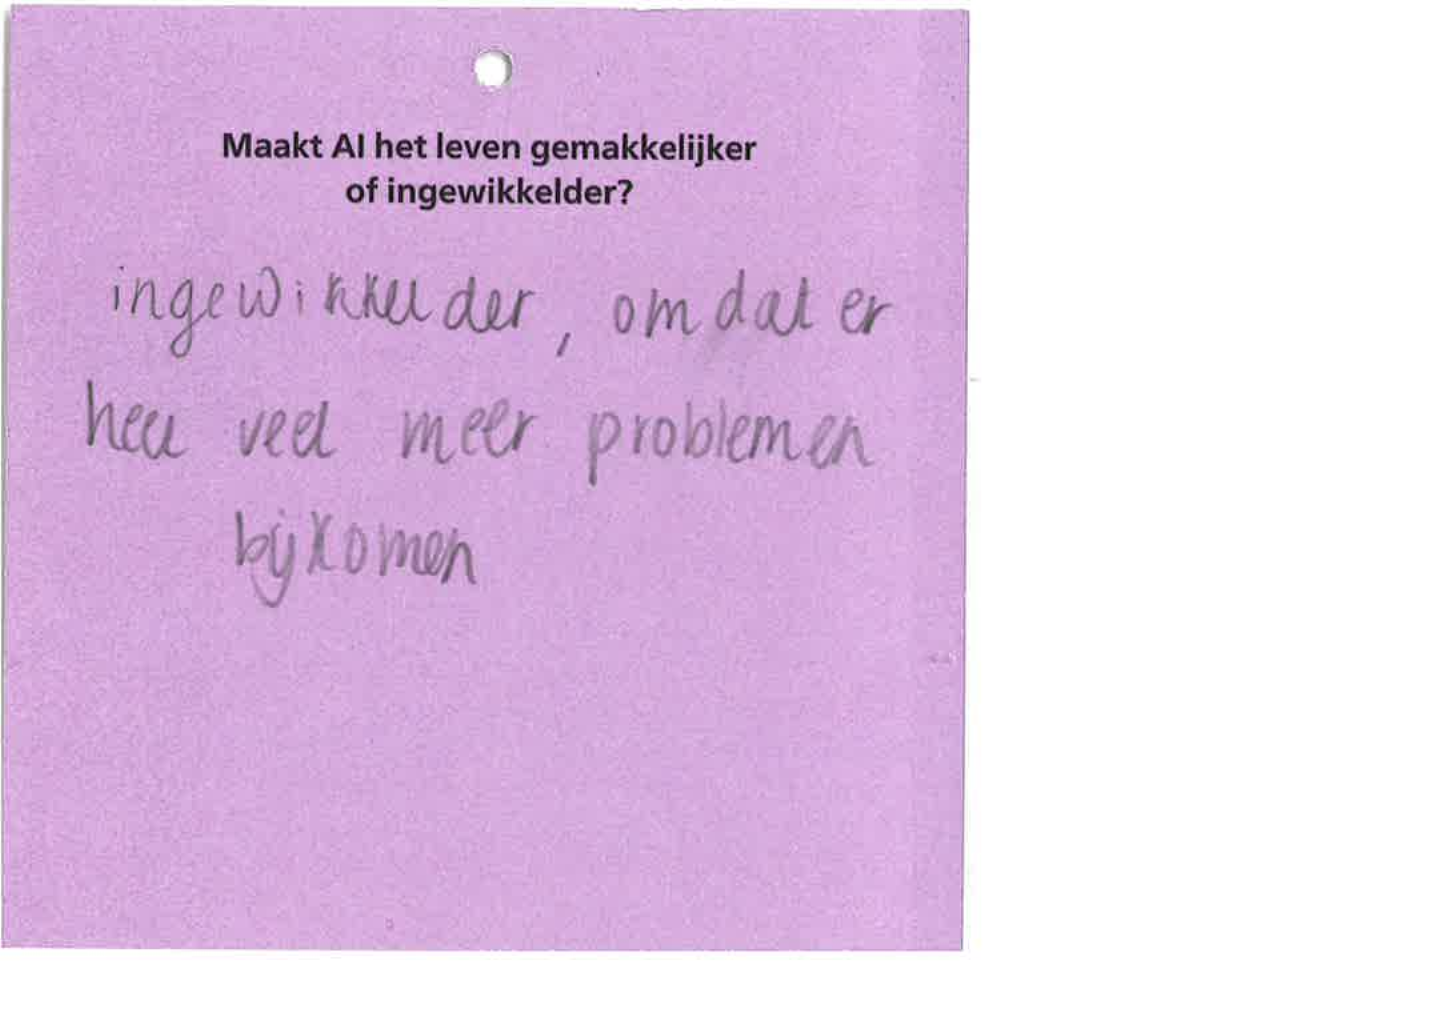 Maakt AI het leven gemakkelijker
of ingewikkelder?
ingewikkelder, omdat er
heel veel meer problemen
bijkomen